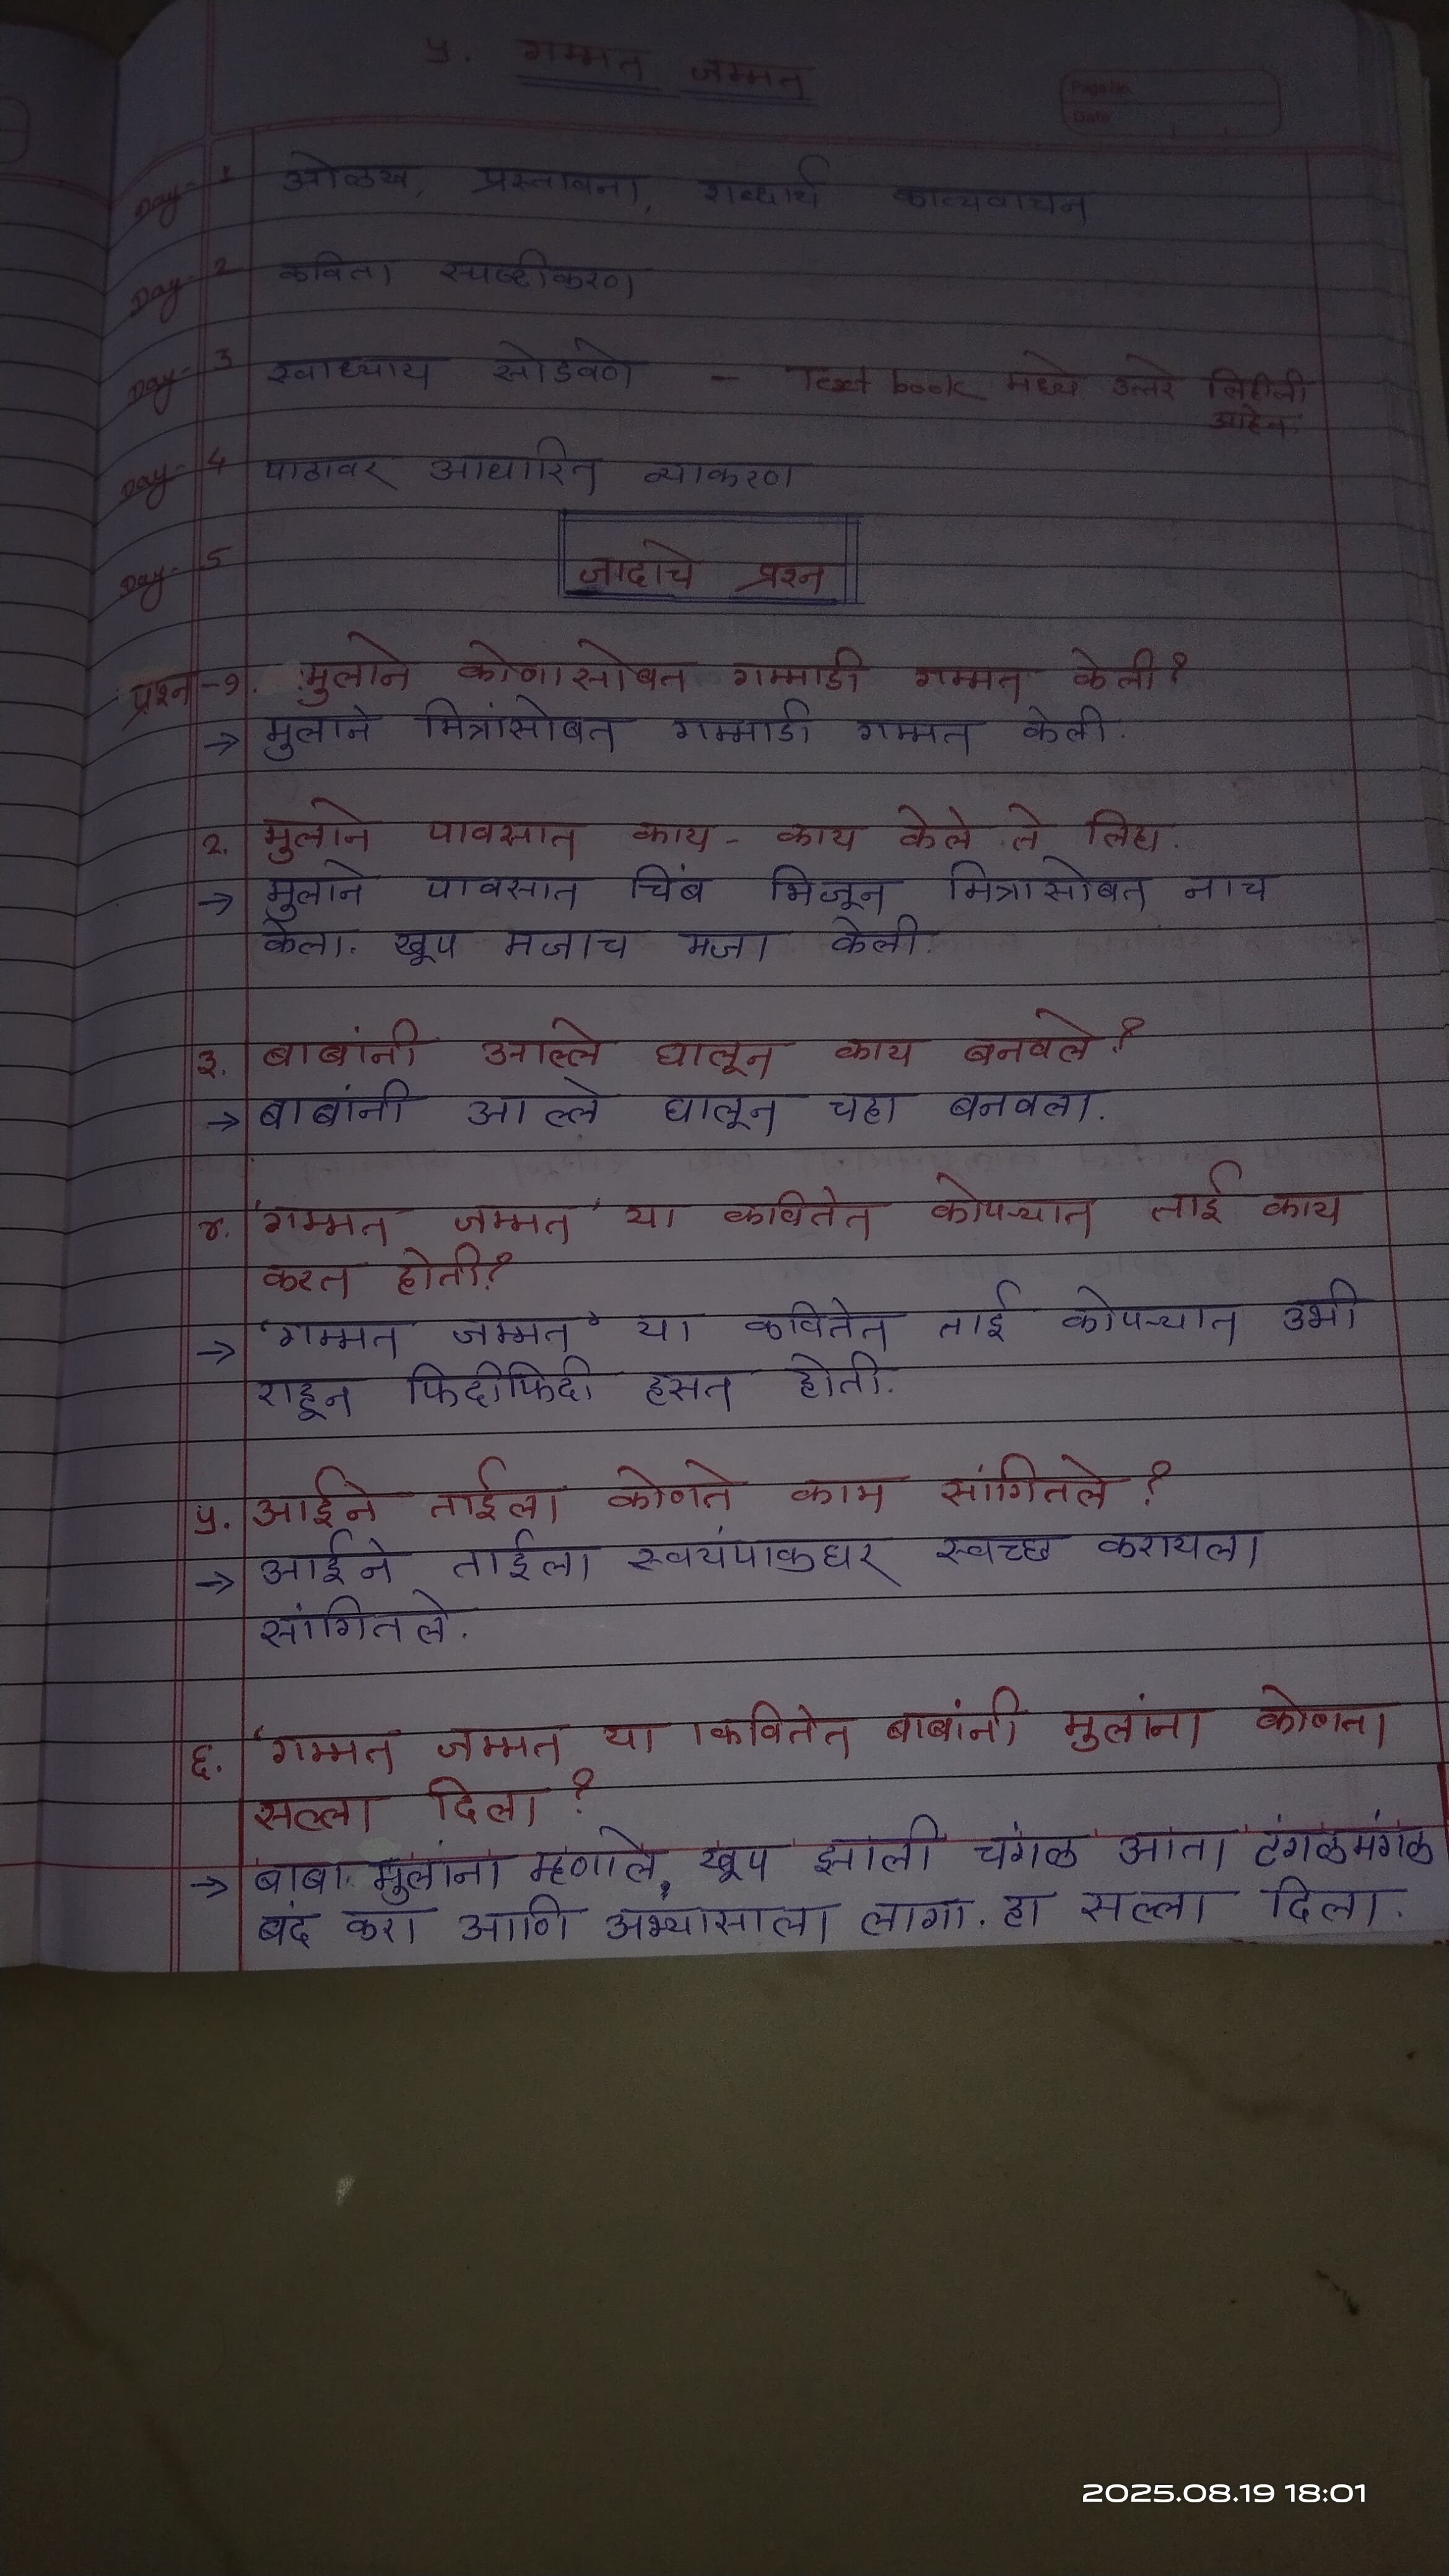 ५. गम्मत जम्मत
Page No.
Date
Day - 1 ओळख, प्रस्तावना, शब्दार्थ काव्यवाचन
Day - 2 कविता स्पष्टीकरण
Day - 3 स्वाध्याय सोडवणे - Text book मध्ये उत्तरे लिहीली
आहेत.
Day - 4 पाठावर आधारित व्याकरण
Day - 5 जादाचे प्रश्न
प्रश्न - १. मुलाने कोणासोबत गम्माडी गम्मत केली?
→ मुलाने मित्रांसोबत गम्माडी गम्मत केली.
२. मुलाने पावसात काय - काय केले ते लिहा.
→ मुलाने पावसात चिंब भिजून मित्रासोबत नाच
केला. खूप मजाच मजा केली.
३. बाबांनी आल्ले घालून काय बनवले?
→ बाबांनी आल्ले घालून चहा बनवला.
४. 'गम्मत जम्मत' या कवितेत कोपऱ्यात ताई काय
करत होती?
→ 'गम्मत जम्मत' या कवितेत ताई कोपऱ्यात उभी
राहून फिदीफिदी हसत होती.
५. आईने ताईला कोणते काम सांगितले?
→ आईने ताईला स्वयंपाकघर स्वच्छ करायला
सांगितले.
६. 'गम्मत जम्मत या कवितेत बाबांनी मुलांना कोणता
सल्ला दिला?
→ बाबा मुलांना म्हणाले, खूप झाली चंगळ आता टंगळमंगळ
बंद करा आणि अभ्यासाला लागा. हा सल्ला दिला.
2025.08.19 18:01